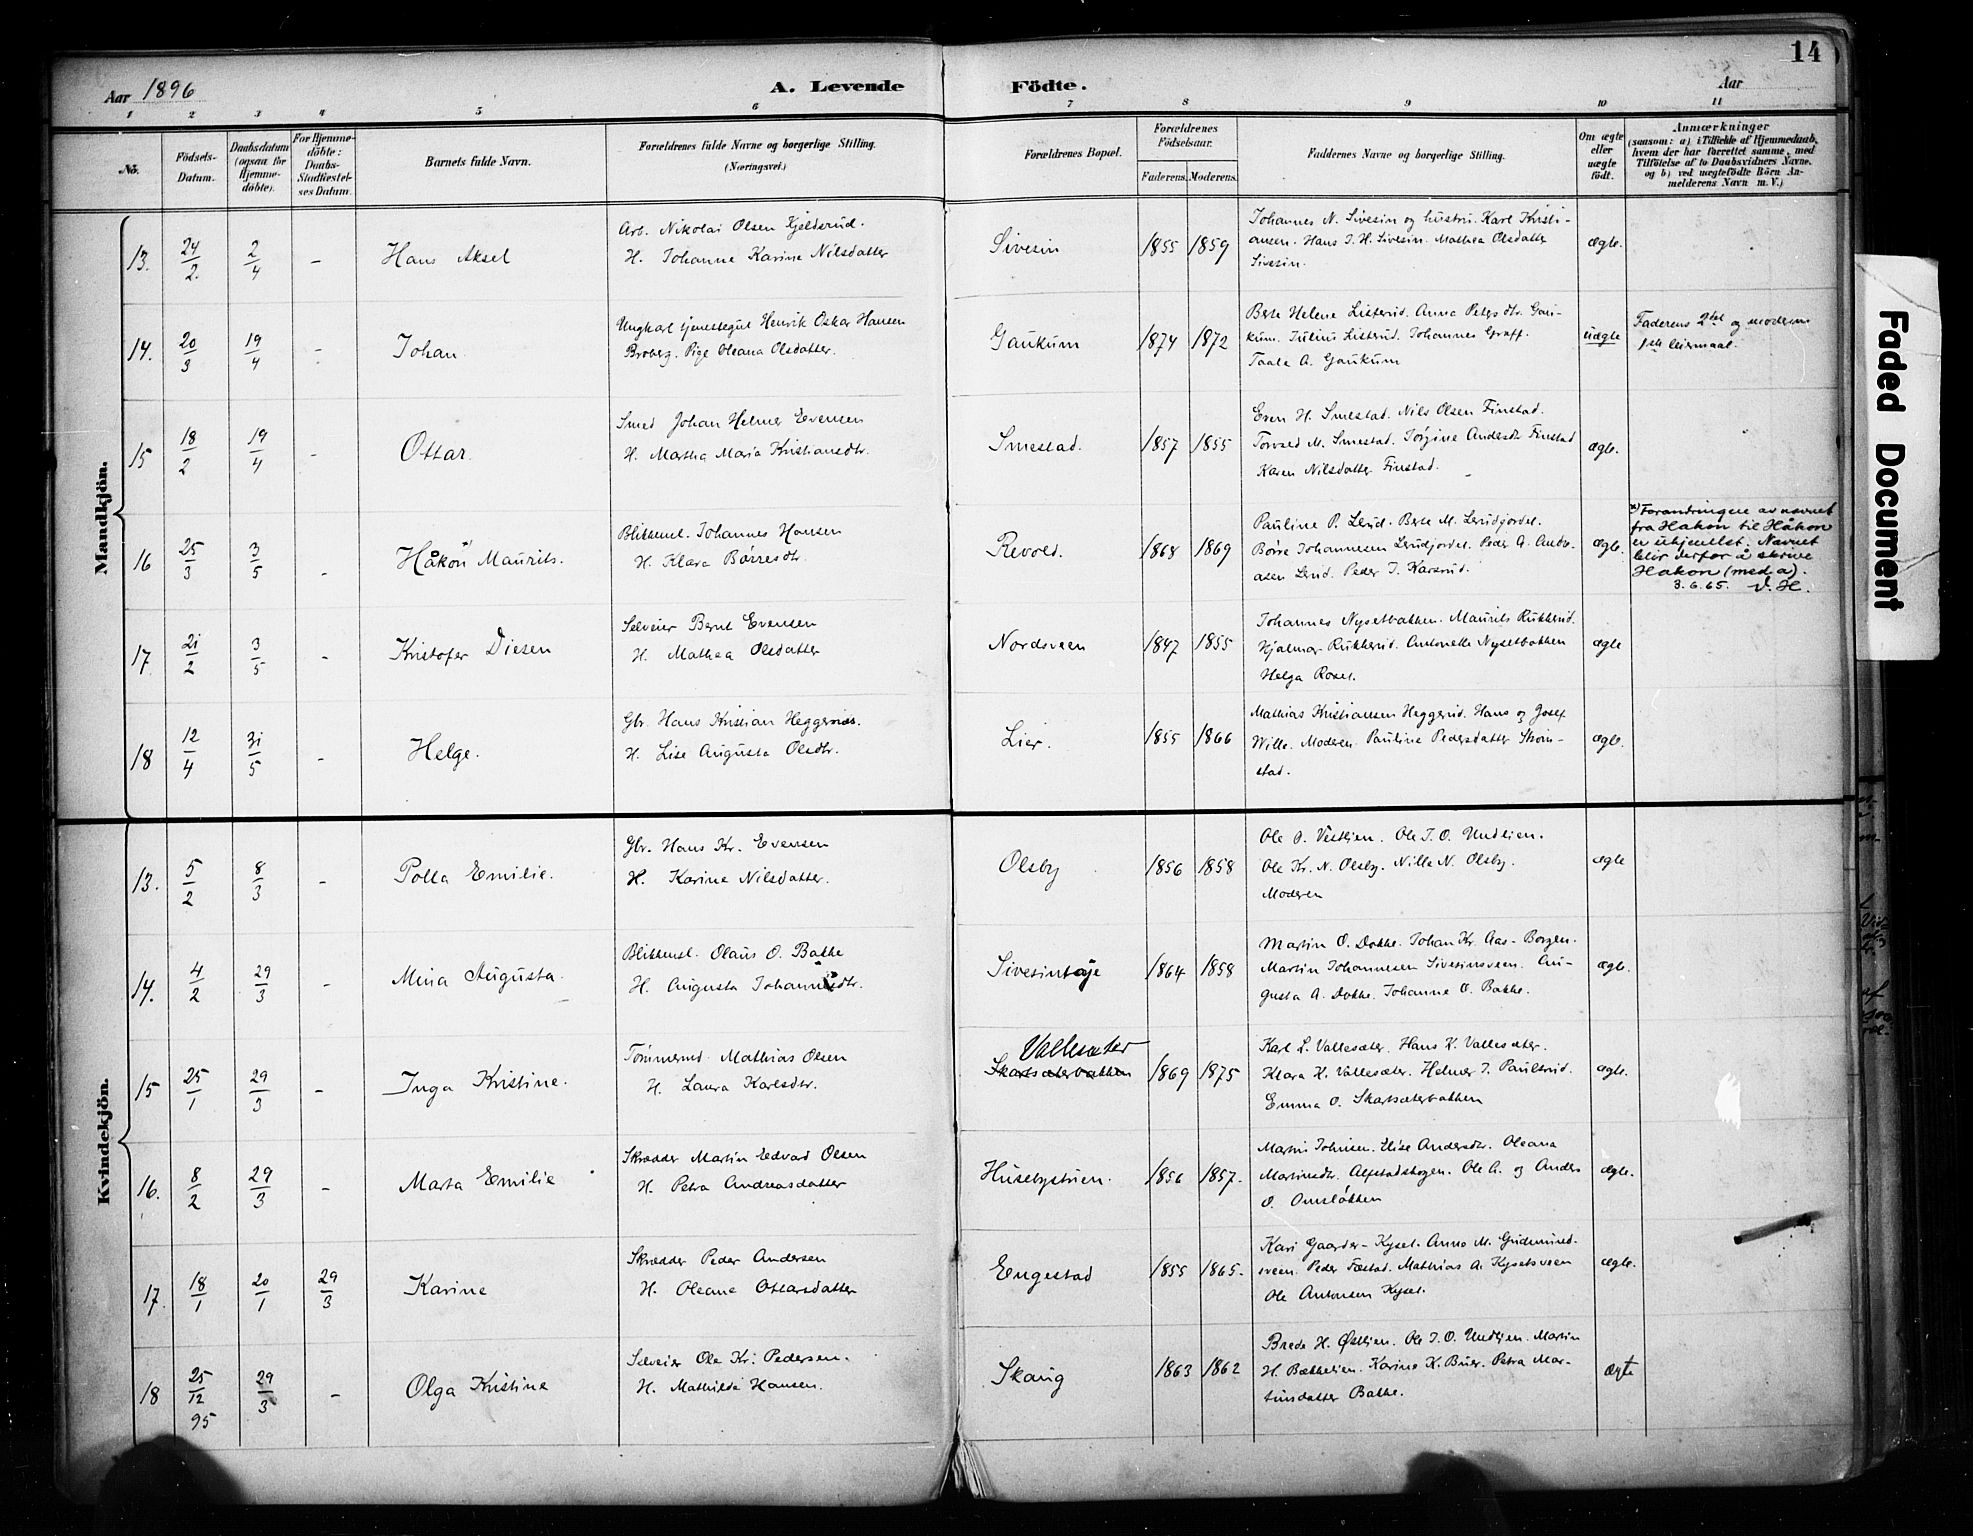 14
Aar 1896
A. Levende Födte.
Aar
1 2 3 4 5 6 7 8 9 10 11
No.
Födsels-Datum.
Daabsdatum (ogsaa for Hjemme-döbte).
For Hjemme-döbte: Daabs-Stadfæstel-ses Datum.
Barnets fulde Navn.
Forældrenes fulde Navne og borgerlige Stilling. (Næringsvei.)
Forældrenes Bopæl.
Forældrenes Födselsaar.
Faderens. Moderens.
Faddernes Navne og borgerlige Stilling.
Om ægte eller uægte født.
Anmærkninger
(saasom: a) i Tilfælde af Hjemmedaab,
hvem der har forrettet samme, med
Tilföielse af to Daabsvidners Navne,
og b) ved uægtefödte Börn An-
melderens Navn m. V.)
Mandkjön.
13. 24/2 2/4 – Hans Aksel
Arb. Nikolai Olsen Kjeldsrud.
H. Johanne Karine Nilsdatter
Sivesin 1855 1859
Johannes N. Sivesin og hustru. Karl Kristi-
ansen. Hans J. H. Sivesin. Mathea Olsdatter
Sivesin.
ægte.
14. 20/3 19/4 – Johan
Ungkarl tjenestegut Henrik Oskar Hansen
Broberg. Pige Oleana Olsdatter.
Gaukum 1874 1872
Berte Helene Listerud. Anna Petersdtr. Gau-
kum. Julius Listerud. Johannes Graff.
Taale A. Gaukum
uægte
Faderens 2det og moderens
1ste leiermaal.
15 18/2 19/4 – Ottar.
Smed Johan Helmer Evensen
H. Martha Maria Kristiansdtr.
Smestad. 1857 1855
Even H. Smestad. Nils Olsen Finstad.
Torvald M. Smestad. Jörgine Andersdtr Finstad
Karen Nilsdatter Finstad.
ægte.
16 25/3 3/5 – Håkon Maurits.
Blikkensl. Johannes Hansen
H. Klara Börresdtr.
Revold. 1868 1869
Pauline P. Lerud. Berte M. Lerudjordet.
Börre Johannesen Lerudjordet. Peder A. Andre-
asen Lerud. Peder J. Karsrud.
ægte.
x) Forandringen av navnet
fra Hakon til Håkon
er uhjemlet. Navnet
blir derfor å skrive
Hakon (med a).
3.6.65. V.H.
17 21/2 3/5 – Kristofer Diesen
Selveier Bernt Evensen
H. Mathea Olsdatter
Nordsveen 1847 1855
Johannes Nysetbakken. Maurits Rukkerud.
Hjalmar Rukkerud. Antonette Nysetbakken
Helga Roset.
ægte
18 12/4 31/5 – Helge.
Gbr. Hans Kristian Heggernæs.
H. Lise Augusta Olsdtr.
Lier. 1855 1866
Mathias Kristiansen Heggerud. Hans og Josef
Wille. Moderen. Pauline Pedersdatter Skom-
stad.
ægte.
Kvindekjön.
13. 5/2 8/3 – Polla Emilie.
Gbr. Hans Kr. Evensen
H. Karine Nilsdatter.
Olsby 1856 1858
Ole O. Vestlien. Ole J. O. Undlien.
Ole Kr. N. Olsby. Nille N. Olsby.
Moderen
ægte
14. 4/2 29/3 – Mina Augusta.
Blikkensl. Olaus O. Bakke
H. Augusta Johannesdtr.
Sivesinteje 1864 1858
Martin O. Dokke. Johan Kr. Aas-Borgen.
Martin Johannesen Sivesinsveen. Au-
gusta A. Dokke. Johanne O. Bakke.
ægte.
15 25/1 29/3 – Inga Kristine.
Tömmermd. Mathias Olsen
H. Laura Karlsdtr.
Vallesæter
Skartsæterbakken 1869 1875
Karl L. Vallesæter. Hans K. Vallesæter.
Klara K. Vallesæter. Helmer J. Paulsrud.
Emma O. Skartsæterbakken
ægte.
16. 8/2 29/3 – Marta Emilie
Skrædder Martin Edvard Olsen
H. Petra Andreasdatter
Husebystuen. 1856 1857.
Martin Johnsen. Elise Andersdtr. Oleana
Martinsdtr. Alfstadskogen. Ole A. og Anders
O. Omslökken
ægte.
17. 18/1 20/1 29/3 Karine
Skrædder Peder Andersen
H. Oleane Ottarsdatter
Engestad 1855 1865.
Kari Gaarder-Kyset. Anne M. Gudmund-
sveen. Peder Fæstad. Mathias A. Kysetsveen
Ole Antonsen Kyset.
ægte.
18 25/12 95 29/3 – Olga Kristine
Selveier Ole Kr. Pedersen.
H. Mathilde Hansen.
Skaug 1863 1862
Brede H. Østlien. Ole J. O. Undlien. Martin
H. Bækkelien. Karine K. Buer. Petra Mar-
tinsdatter Bakke.
ægte
Faded Document